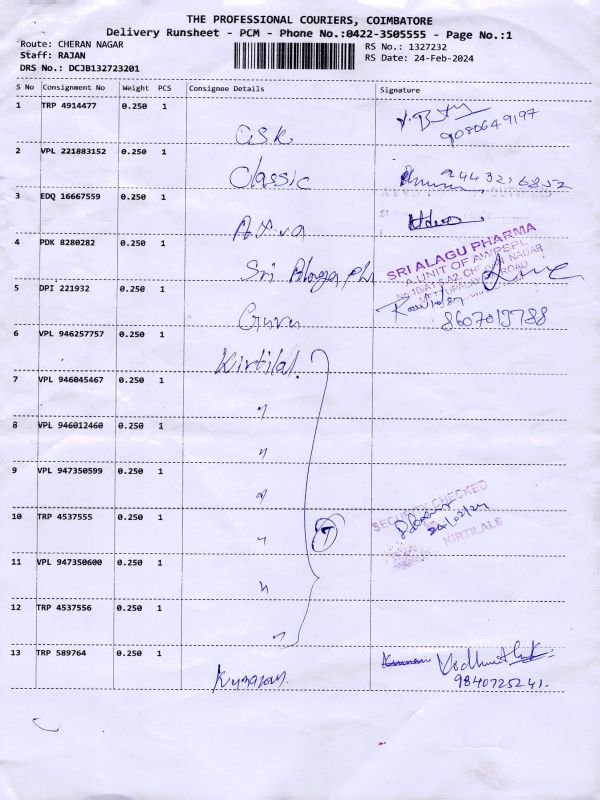 THE PROFESSIONAL COURIERS, COIMBATORE
Delivery Runsheet - PCM - Phone No.:0422-3505555 - Page No.:1
Route: CHERAN NAGAR RS No.: 1327232
Staff: RAJAN RS Date: 24-Feb-2024
DRS No.: DCJB132723201
S No Consignment No Weight PCS Consignee Details Signature
1 TRP 4914477 0.250 1
CSK 9080649197
2 VPL 221883152 0.250 1
Classic 9443216852
3 EDQ 16667559 0.250 1
4 PDK 8280282 0.250 1
Sri
SRI ALAGU PHARMA
A UNIT OF AWPSPL
5 DPI 221932 0.250 1
Guru 8607013788
6 VPL 946257757 0.250 1
Kirtilal.
7 VPL 946045467 0.250 1
〃
8 VPL 946012460 0.250 1
〃
9 VPL 947350599 0.250 1
〃
SECURITY CHECKED
10 TRP 4537555 0.250 1
〃 7 26/02/24
KIRTILALS
11 VPL 947350600 0.250 1
〃
12 TRP 4537556 0.250 1
〃
13 TRP 589764 0.250 1
Kumaran. 9840725241.